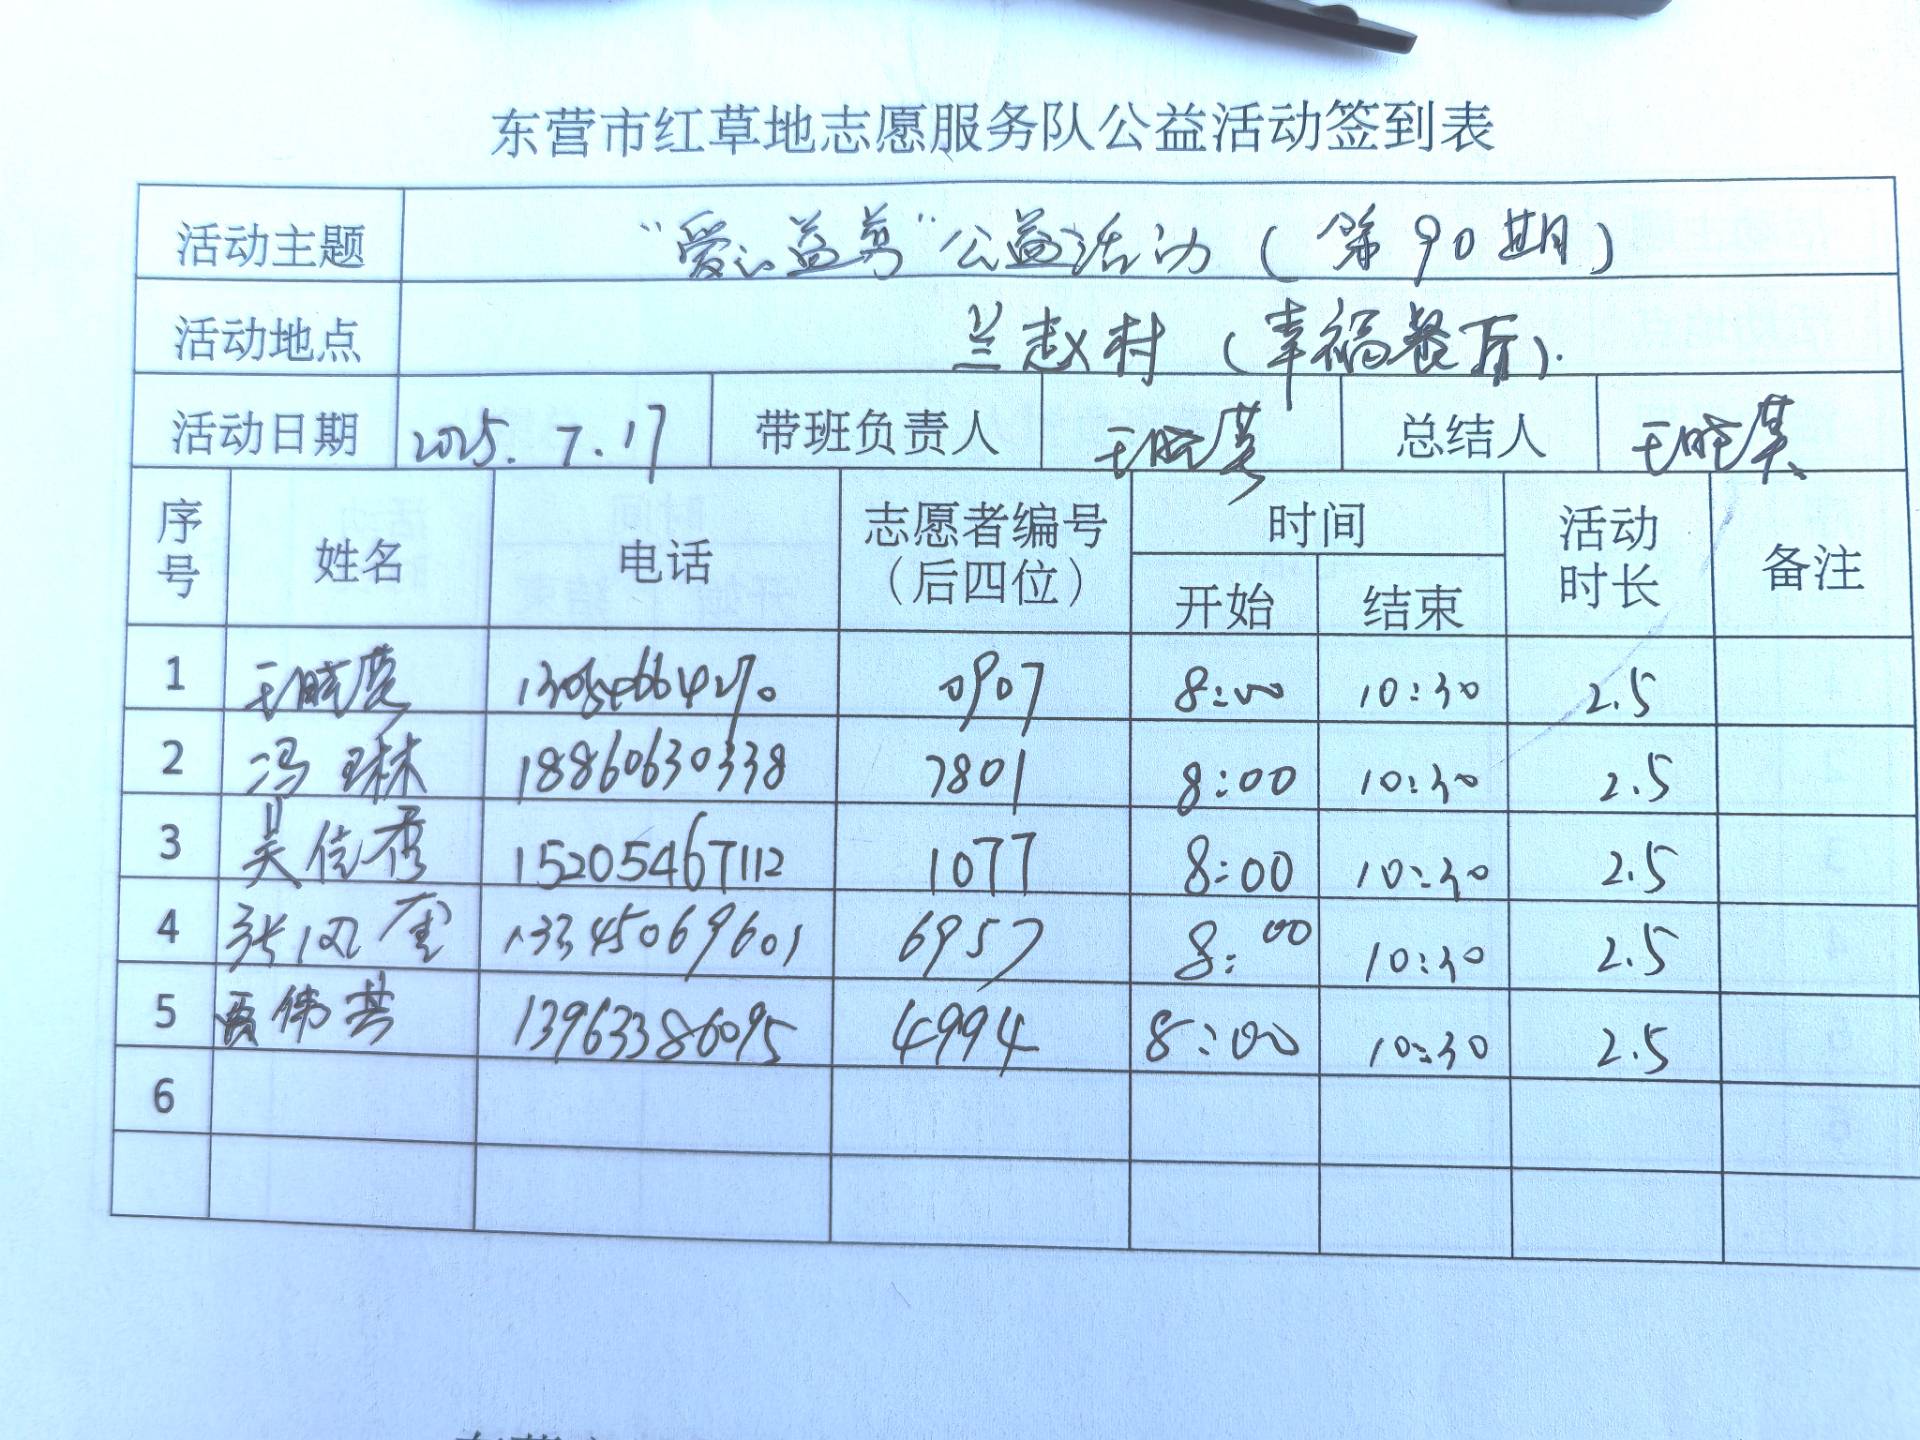 东营市红草地志愿服务队公益活动签到表
活动主题 “爱心益剪”公益活动（第90期）
活动地点 兰赵村（幸福餐厅）.
活动日期 2025.7.17 带班负责人 王晓英 总结人 王晓英
序号 姓名 电话 志愿者编号（后四位） 时间 开始 结束 活动时长 备注
1 王晓英 13054664270 0907 8:00 10:30 2.5
2 冯琳 18860630338 7801 8:00 10:30 2.5
3 吴信秀 15205467112 1077 8:00 10:30 2.5
4 张风 13345069601 6957 8:00 10:30 2.5
5 贾伟芸 13963386095 4994 8:00 10:30 2.5
6